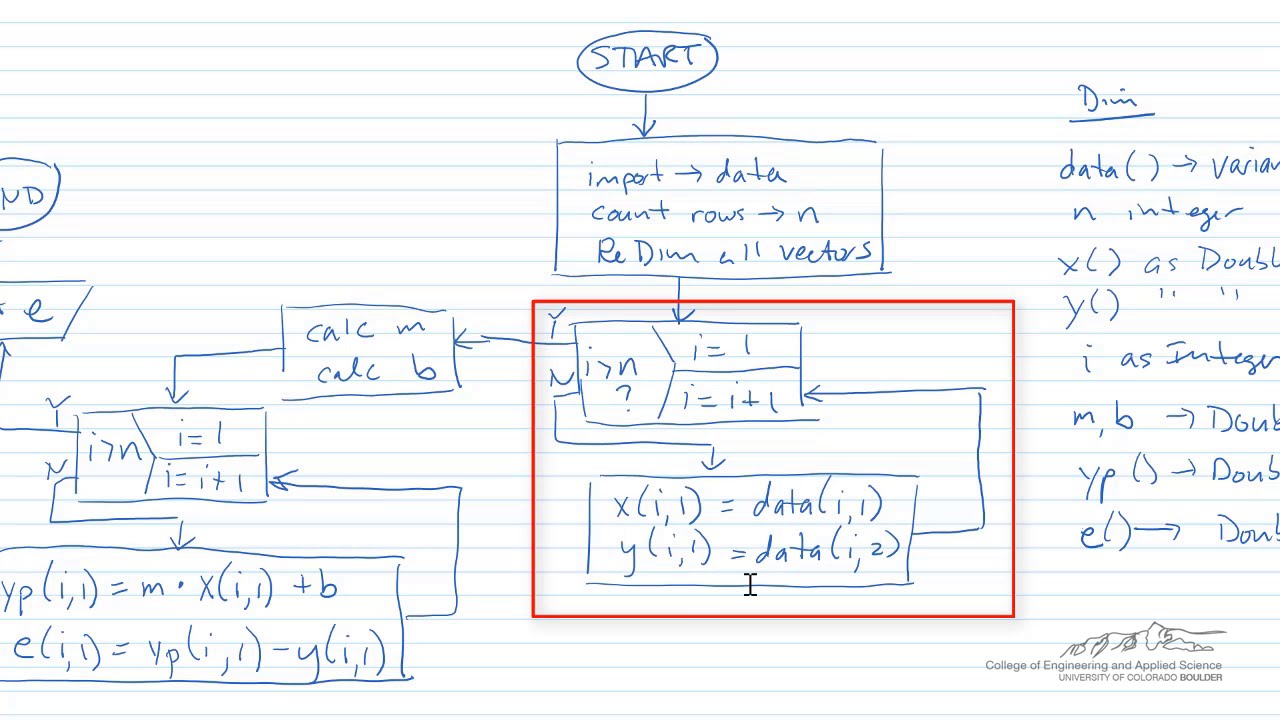 START
import → data
count rows → n
ReDim all vectors
Y
N
i>n
?
i = 1
i = i+1
x(i,1) = data(i,1)
y(i,1) = data(i,2)
calc m
calc b
Y
N
i>n
i = 1
i = i+1
yp(i,1) = m · x(i,1) + b
e(i,1) = yp(i,1) - y(i,1)
e
ND
Dim
data() → varian
n integer
x() as Doubl
y() " "
i as Integer
m, b → Doub
yp() → Doub
e() → Doub
College of Engineering and Applied Science
UNIVERSITY OF COLORADO BOULDER